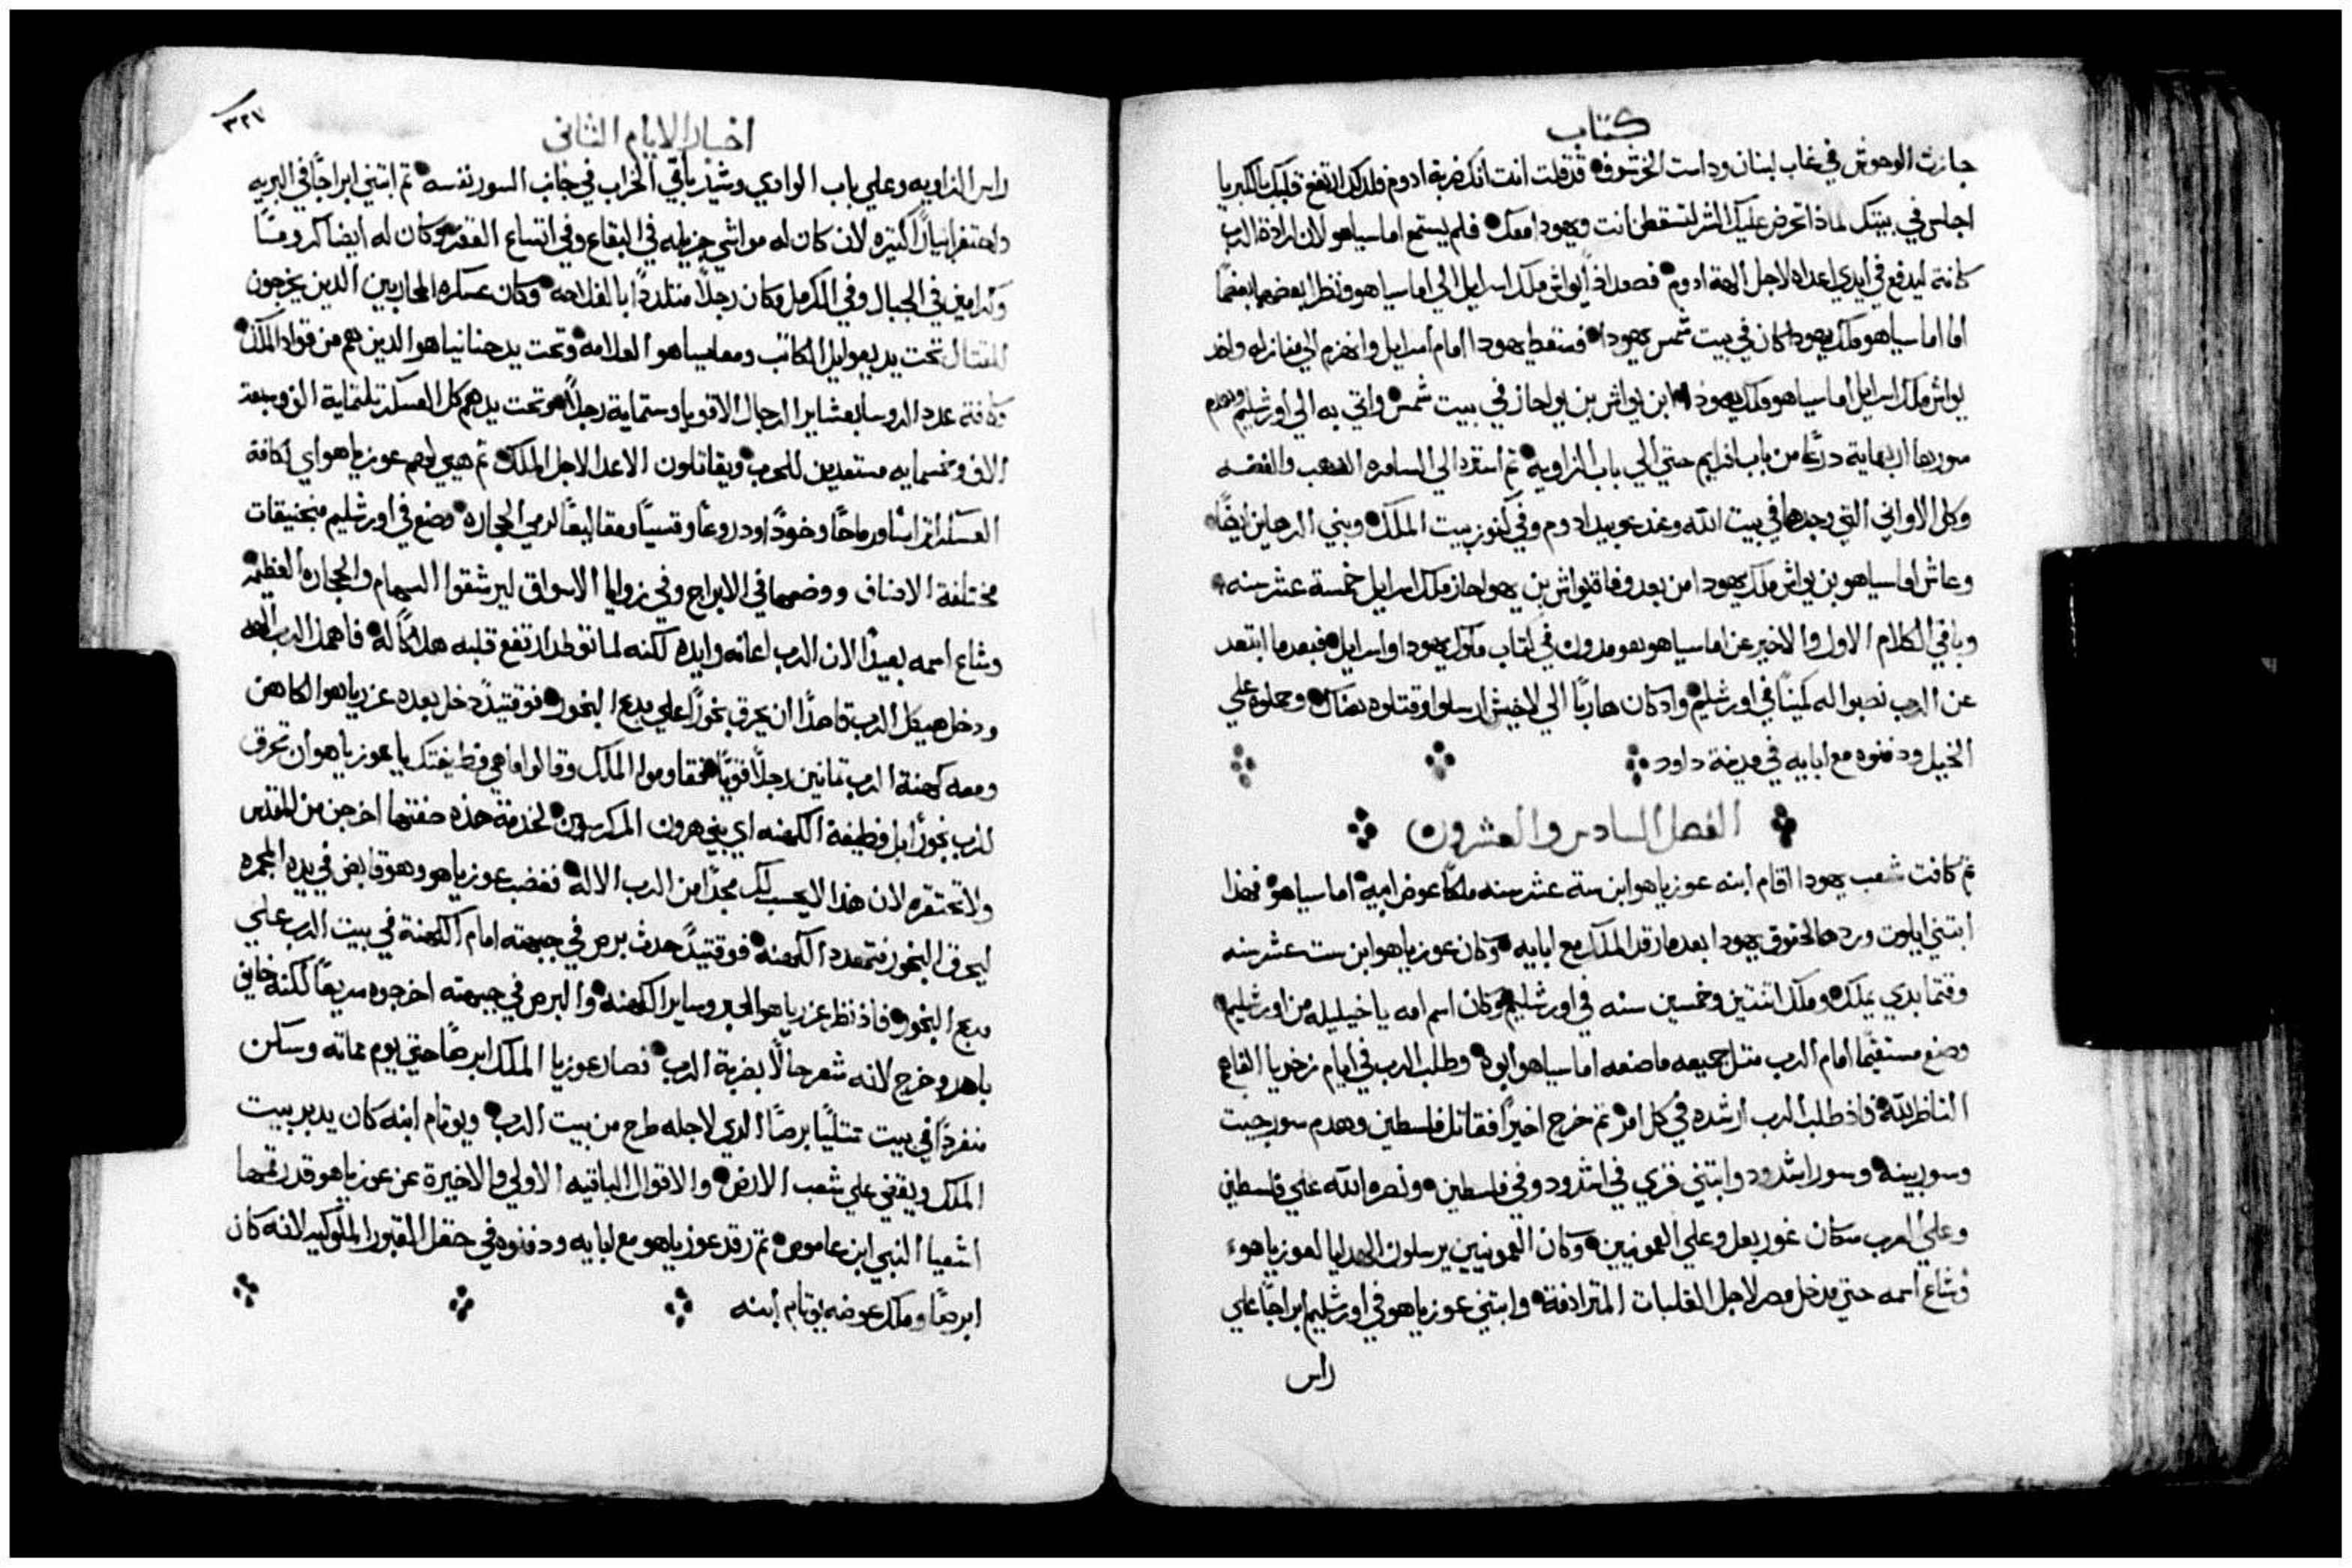 كتاب
جازت الوحوش في غاب لبنان وداست الخرشوف قد قلت انت انك ضربة ادوم فلدلك ارتفع قلبك بالكبريا
اجلس في بيتك لماذا تحرض عليك الشر لتسقطن انت ويهودا معك فلم يستمع اماسياهو لان ارادة الرب
كانة ليدفع في ايدي اعداه لاجل الهة ادوم فصعد اذاً يواش ملك اسرايل الي اماسياهو ونظرا بعضهما بعضاً
اما اماسياهو ملك يهودا كان في بيت شمس يهودا فسقط يهودا امام اسرايل وانهزم الي منازله واخد
يواش ملك اسرايل اماسياهو ملك يهودا ابن يواش بن يواحاز في بيت شمس واتي به الي اورشليم وهدم
سورها اربعماية درعاً من باب افرايم حتي الي باب الزاوية ثم استرد الي السامره الذهب والفضه
وكل الاواني التي وجدها في بيت الله وعند عوبيد ادوم وفي كنوز بيت الملك وبني الرهاين ايضاً
وعاش اماسياهو بن يواش ملك يهودا من بعد وفاة يواش بن يهواحاز ملك اسرايل خمسة عشر سنه
وباقي الكلام الاول والاخير عن اماسياهو هو مدون في كتاب ملوك يهودا واسرايل فبعدما ابتعد
عن الرب نصبوا له كميناً في اورشليم واد كان هارباً الي لاخيش ارسلوا وقتلوه هناك وحملوه علي
الخيل ودفنوه مع ابايه في مدينة داود
الفصل السادس والعشرون
ثم كافت شعب يهودا اقام ابنه عوزياهو ابن ستة عشر سنه ملكاً عوض ابيه اماسياهو فهذا
ابتني ايلوت وردها لحقوق يهودا بعدما رقد الملك مع ابايه وكان عوزياهو ابن ست عشر سنه
وقتما بدي يملك وملك اثنتين وخمسين سنه في اورشليم وكان اسم امه ياخيليله من اورشليم
وصنع مستقيماً امام الرب مثل جميعه ماصنعه اماسياهو ابوه وطلب الرب في ايام زخريا الفاهم
الناظر الله فاذ طلب الرب ارشده في كل امر ثم خرج اخيراً فقاتل فلسطين وهدم سور جيت
وسور يبنه وسور اشدود وابتني قري في اشدود وفي فلسطين ونصره الله علي فلسطين
وعلي العرب سكان غور بعل وعلي العمونيين وكان العمونيين يرسلون الهدايا لعوزياهو
وشاع اسمه حتي مدخل مصر لاجل الغلبات المترادفة وابتني عوزياهو في اورشليم ابراجاً علي
راس
اخبار الايام الثاني
٣٢٧
راس الزاويه وعلي باب الوادي وشيد باقي الخراب في جانب السور نفسه ثم ابتني ابراجاً في البريه
واحتفر ابياراً كتيره لان كان له مواشي جزيله في البقاع وفي اتساع القفر وكان له ايضا كرومًا
وكرامين في الجبال وفي الكرمل وكان رجلاً متلدداً بالفلاحه وكان عسكره المحاربين الدين يخرجون
للقتال تحت يد يعوايل الكاتب ومعاسياهو العلامه وتحت يد حنانياهو الدين هم من قواد الملك
وكافة عدد الروسا بعشاير الرجال الاقويا وستماية رجلاً وتحت يدهم كل العسكر تلتماية الف وسبعة
الاف وخمسمايه مستعدين للحرب ويقاتلون الاعدا لاجل الملك ثم هيي لهم عوزياهو اي لكافة
العسكر اتراساً ورماحاً وخوداً ودروعاً وقسياً ومقاليعاً لرمي الحجاره وصنع في اورشليم منجنيقات
مختلفة الاصناف ووضعها في الابراج وفي زوايا الاسواق ليرشقوا السهام والحجاره العظيمه
وشاع اسمه بعيداً لان الرب اعانه وايده لكنه لما توطد ارتفع قلبه هلاكاً له فاهمل الرب الهه
ودخل هيكل الرب قاصداً ان يحرق بخوراً علي مدبح البخور فوقتيدً دخل بعده عزرياهو الكاهن
ومعه كهنة الرب تمانين رجلاً قوياً فقاوموا الملك وقالوا ما هي وظيفتك ياعوزياهو ان تحرق
للرب بخوراً بل وظيفة الكهنه اي بني هرون المكرسين لخدمة هذه صفتها اخرجن من المقدس
ولا تحتقره لان هذا لا يحسب لك مجداً من الرب الاله فغضب عوزياهو وهو قابض في يده المجمره
ليحرق البخور فتهدد الكهنه فوقتيدً حدث برص في جبهته امام الكهنة في بيت الرب علي
مدبح البخور فاذ نظر عزرياهو الحبر وساير الكهنه والبرص في جبهته اخرجوه سريعاً لكنه خايف
باهر وخرج لانه شعر حالاً بضربة الرب فصار عوزيا الملك ابرصاً حتي يوم مماته وسكن
منفرداً في بيت ممتلياً برصاً الدي لاجله طرح من بيت الرب ويوتام ابنه كان يدبر بيت
الملك ويقضي علي شعب الارض والاقوال الباقيه الاولي والاخيرة عن عوزياهو قد رقمها
اشعيا النبي ابن عاموص ثم رقد عوزياهو مع ابايه ودفنوه في حقل القبور الملوكيه لانه كان
ابرصاً وملك عوضه يوتام ابنه